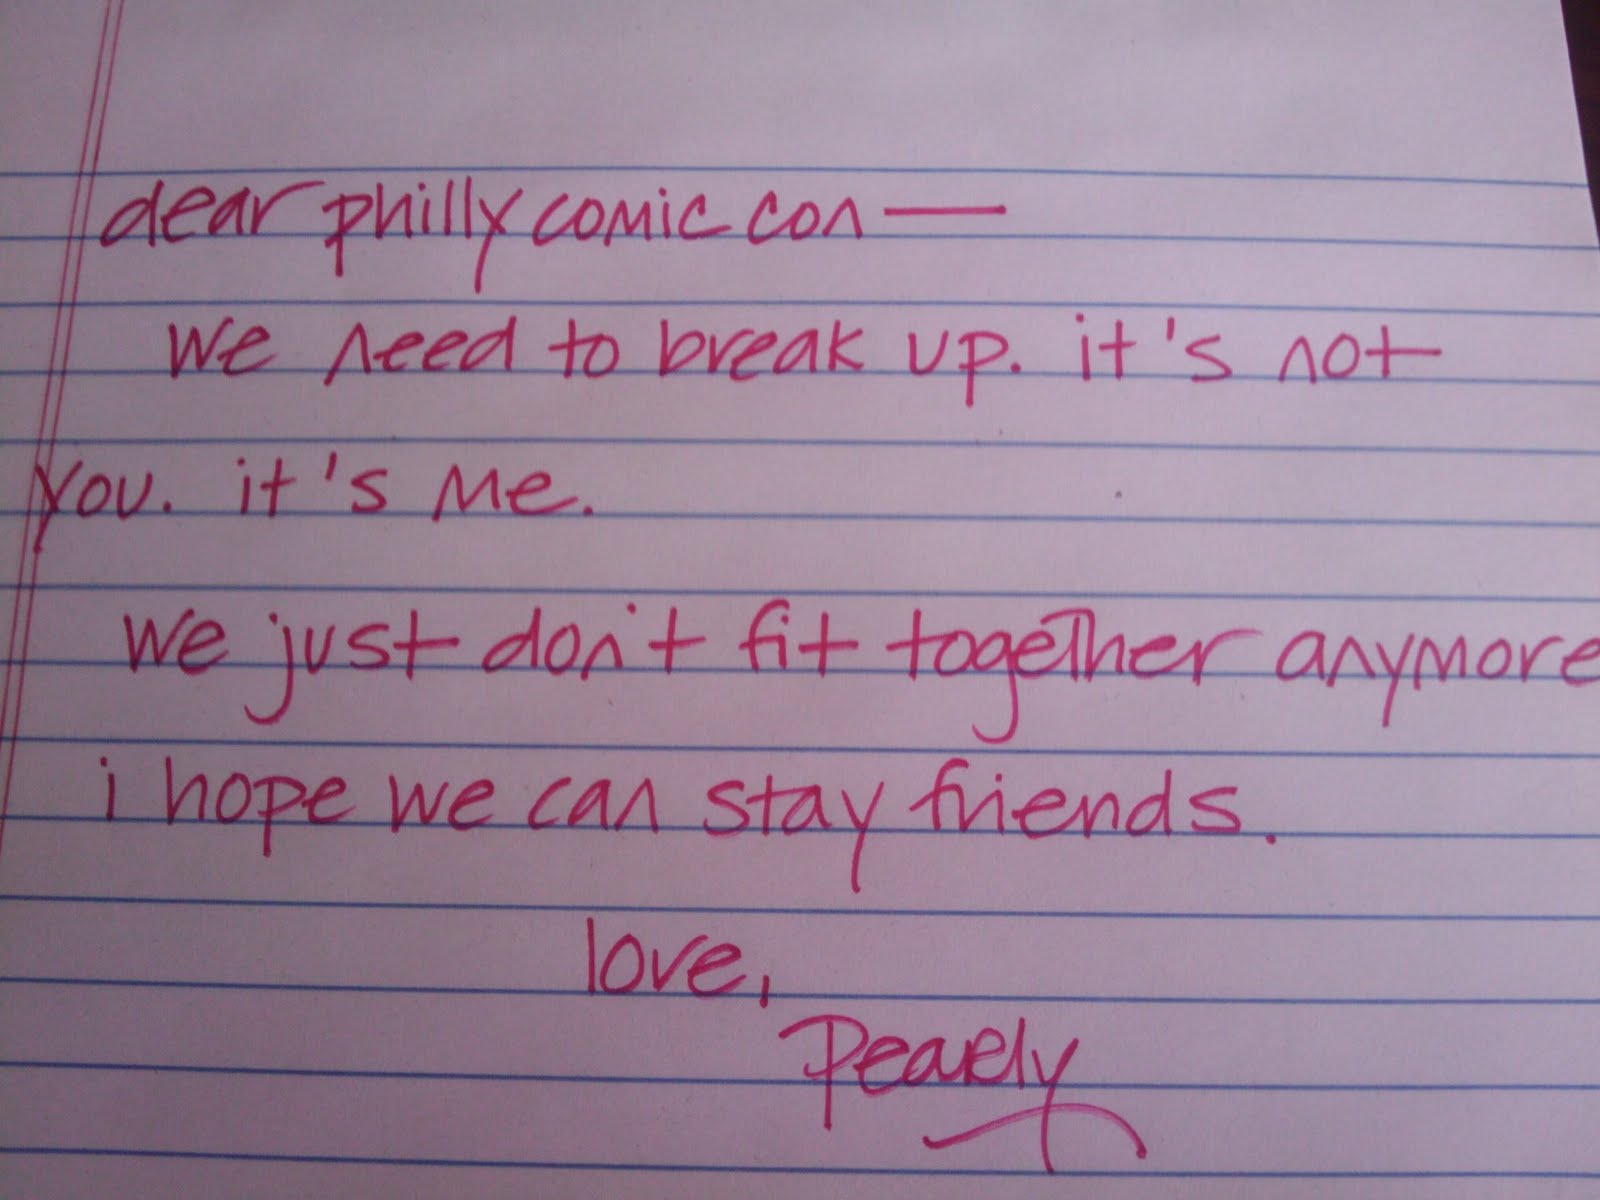 dear philly comic con —
we need to break up. it's not
you. it's me.
we just don't fit together anymore
i hope we can stay friends.
love,
Pearly